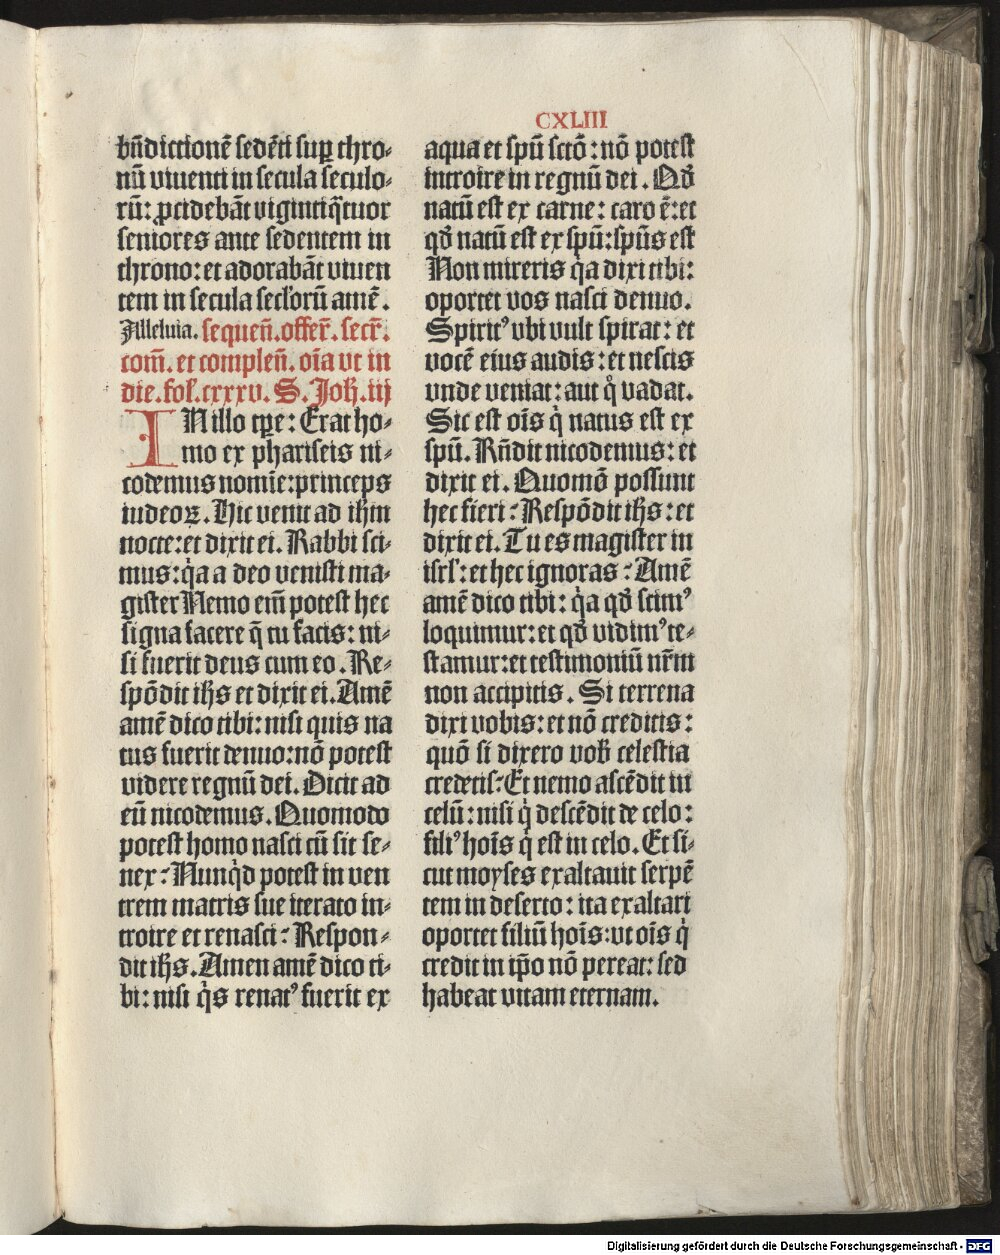 CXLIII
bñdictionē sedēti suꝑ thro⸗
nū viuenti in secula seculo⸗
rū: ꝓcidebāt viginti qͣtuor
seniores ante sedentem in
throno: et adorabāt viuen
tem in secula secl'orū amē.
Alleluia. sequeñ. offer̄. secr̄.
com̄. et compleñ. oīa vt in
die. fol. cxxxv. S. Joh̄. iij
IN illo tꝑe: Erat ho⸗
mo ex phariseis ni⸗
codemus nomīe: princeps
iudeoꝝ. Hic venit ad ihm̄
nocte: et dixit ei. Rabbi sci⸗
mus: qͥa a deo venisti ma⸗
gister Nemo em̄ potest hec
signa facere q̄ tu facis: ni⸗
si fuerit deus cum eo. Re⸗
spōdit ih̄s et dixit ei. Amē
amē dico tibi: nisi quis na
tus fuerit denuo: nō potest
videre regnū dei. Dicit ad
eū nicodemus. Quomodo
potest homo nasci cū sit se⸗
nex: Nunqͥd potest in ven
trem matris sue iterato in⸗
troire et renasci: Respon⸗
dit ih̄s. Amen amē dico ti⸗
bi: nisi qͥs renatꝰ fuerit ex
aqua et spū sctō: nō potest
introire in regnū dei. Qd̄
natū est ex carne: caro ē: et
qd̄ natū est ex spū: spūs est
Non mireris qͥa dixi tibi:
oportet vos nasci denuo.
Spiritꝰ vbi vult spirat: et
vocē eius audis: et nescis
vnde veniat: aut qͦ vadat.
Sic est oīs qͥ natus est ex
spū. Rñdit nicodemus: et
dixit ei. Quomō possunt
hec fieri: Respōdit ih̄s: et
dixit ei. Tu es magister in
isrl': et hec ignoras: Amē
amē dico tibi: qͥa qd̄ scimꝰ
loquimur: et qd̄ vidimꝰ te⸗
stamur: et testimoniū nr̄m
non accipitis. Si terrena
dixi vobis: et nō creditis:
quō si dixero vob̄ celestia
credetis: Et nemo ascēdit in
celū: nisi qͥ descēdit de celo:
filiꝰ hoīs qͥ est in celo. Et si⸗
cut moyses exaltauit serpē
tem in deserto: ita exaltari
oportet filiū hoīs: vt oīs qͥ
credit in ip̄o nō pereat: sed
habeat vitam eternam.
Digitalisierung gefördert durch die Deutsche Forschungsgemeinschaft - DFG